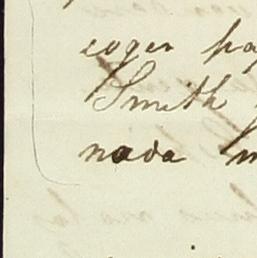 coger pa
Smith
nada m